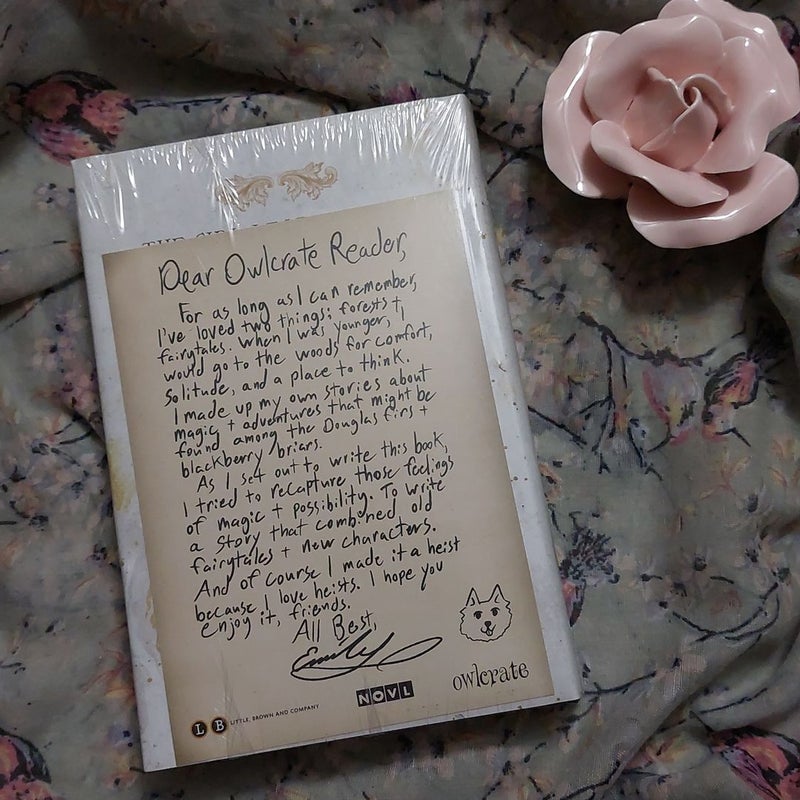 Dear Owlcrate Reader,
For as long as I can remember,
I've loved two things: forests +
fairytales. When I was younger, I
would go to the woods for comfort,
solitude, and a place to think.
I made up my own stories about
magic + adventures that might be
found among the Douglas firs +
blackberry briars.
As I set out to write this book,
I tried to recapture those feelings
of magic + possibility. To write
a story that combined old
fairytales + new characters.
And of course I made it a heist
because I love heists. I hope you
enjoy it, friends.
All Best,
Emily
owlcrate
NOVL
LB LITTLE, BROWN AND COMPANY